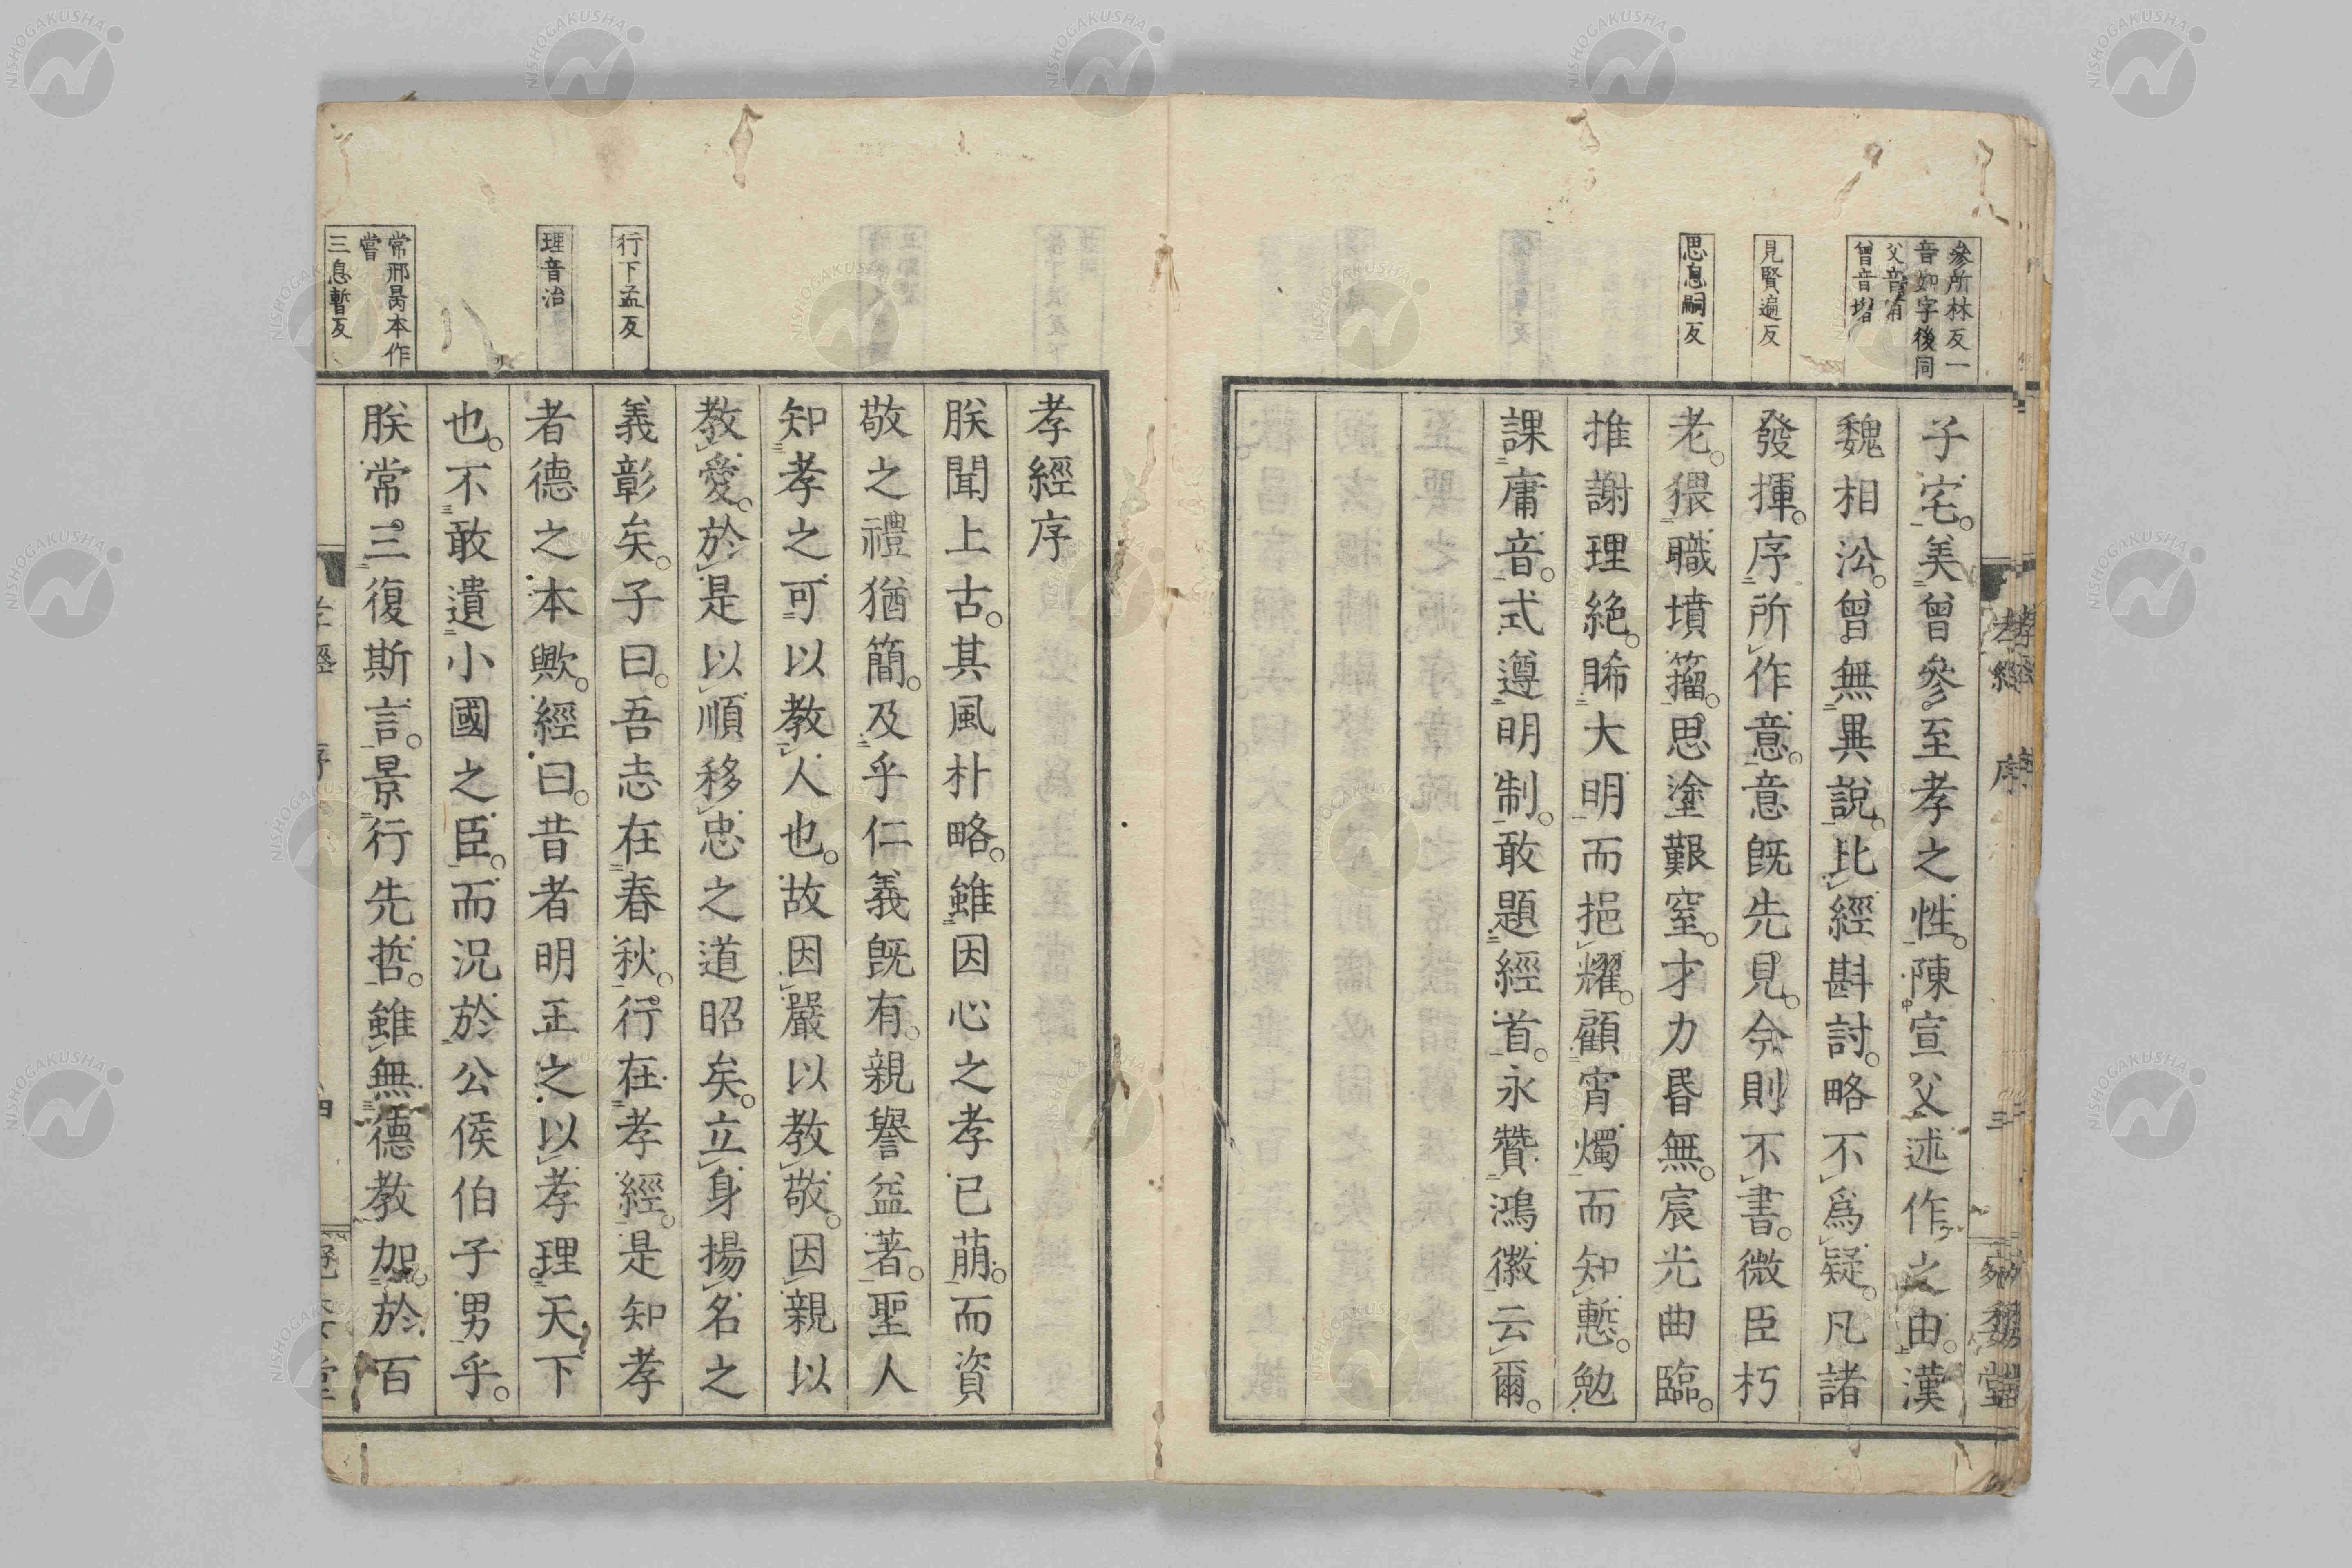 參所林反一
音如字後同
父音甫
曾音增
見賢遍反
思息嗣反
子宅。美曾參至孝之性。陳宣父述作之由。漢
魏相㳂。曾無異說。比經斟討。略不爲疑。凡諸
發揮。序所作意。意旣先見。今則不書。微臣朽
老。猥職墳籀。思塗艱窒。才力昬無。宸光曲臨。
推謝理絶。睎大明而挹耀。顧宵燭而知慙。勉
課庸音。式遵明制。敢題經首。永贊鴻徽云爾。
孝經 序
三
行下孟反
理音治
常邢昺本作
嘗
三息暫反
孝經序
朕聞上古。其風朴略。雖因心之孝已萠。而資
敬之禮猶簡。及乎仁義旣有。親譽益著。聖人
知孝之可以教人也。故因嚴以教敬。因親以
教愛。於是以順移忠之道昭矣。立身揚名之
義彰矣。子曰。吾志在春秋。行在孝經。是知孝
者德之本歟。經曰。昔者明王之以孝理天下
也。不敢遺小國之臣。而況於公侯伯子男乎。
朕常三復斯言。景行先哲。雖無德教加於百
NISHOGAKUSHA